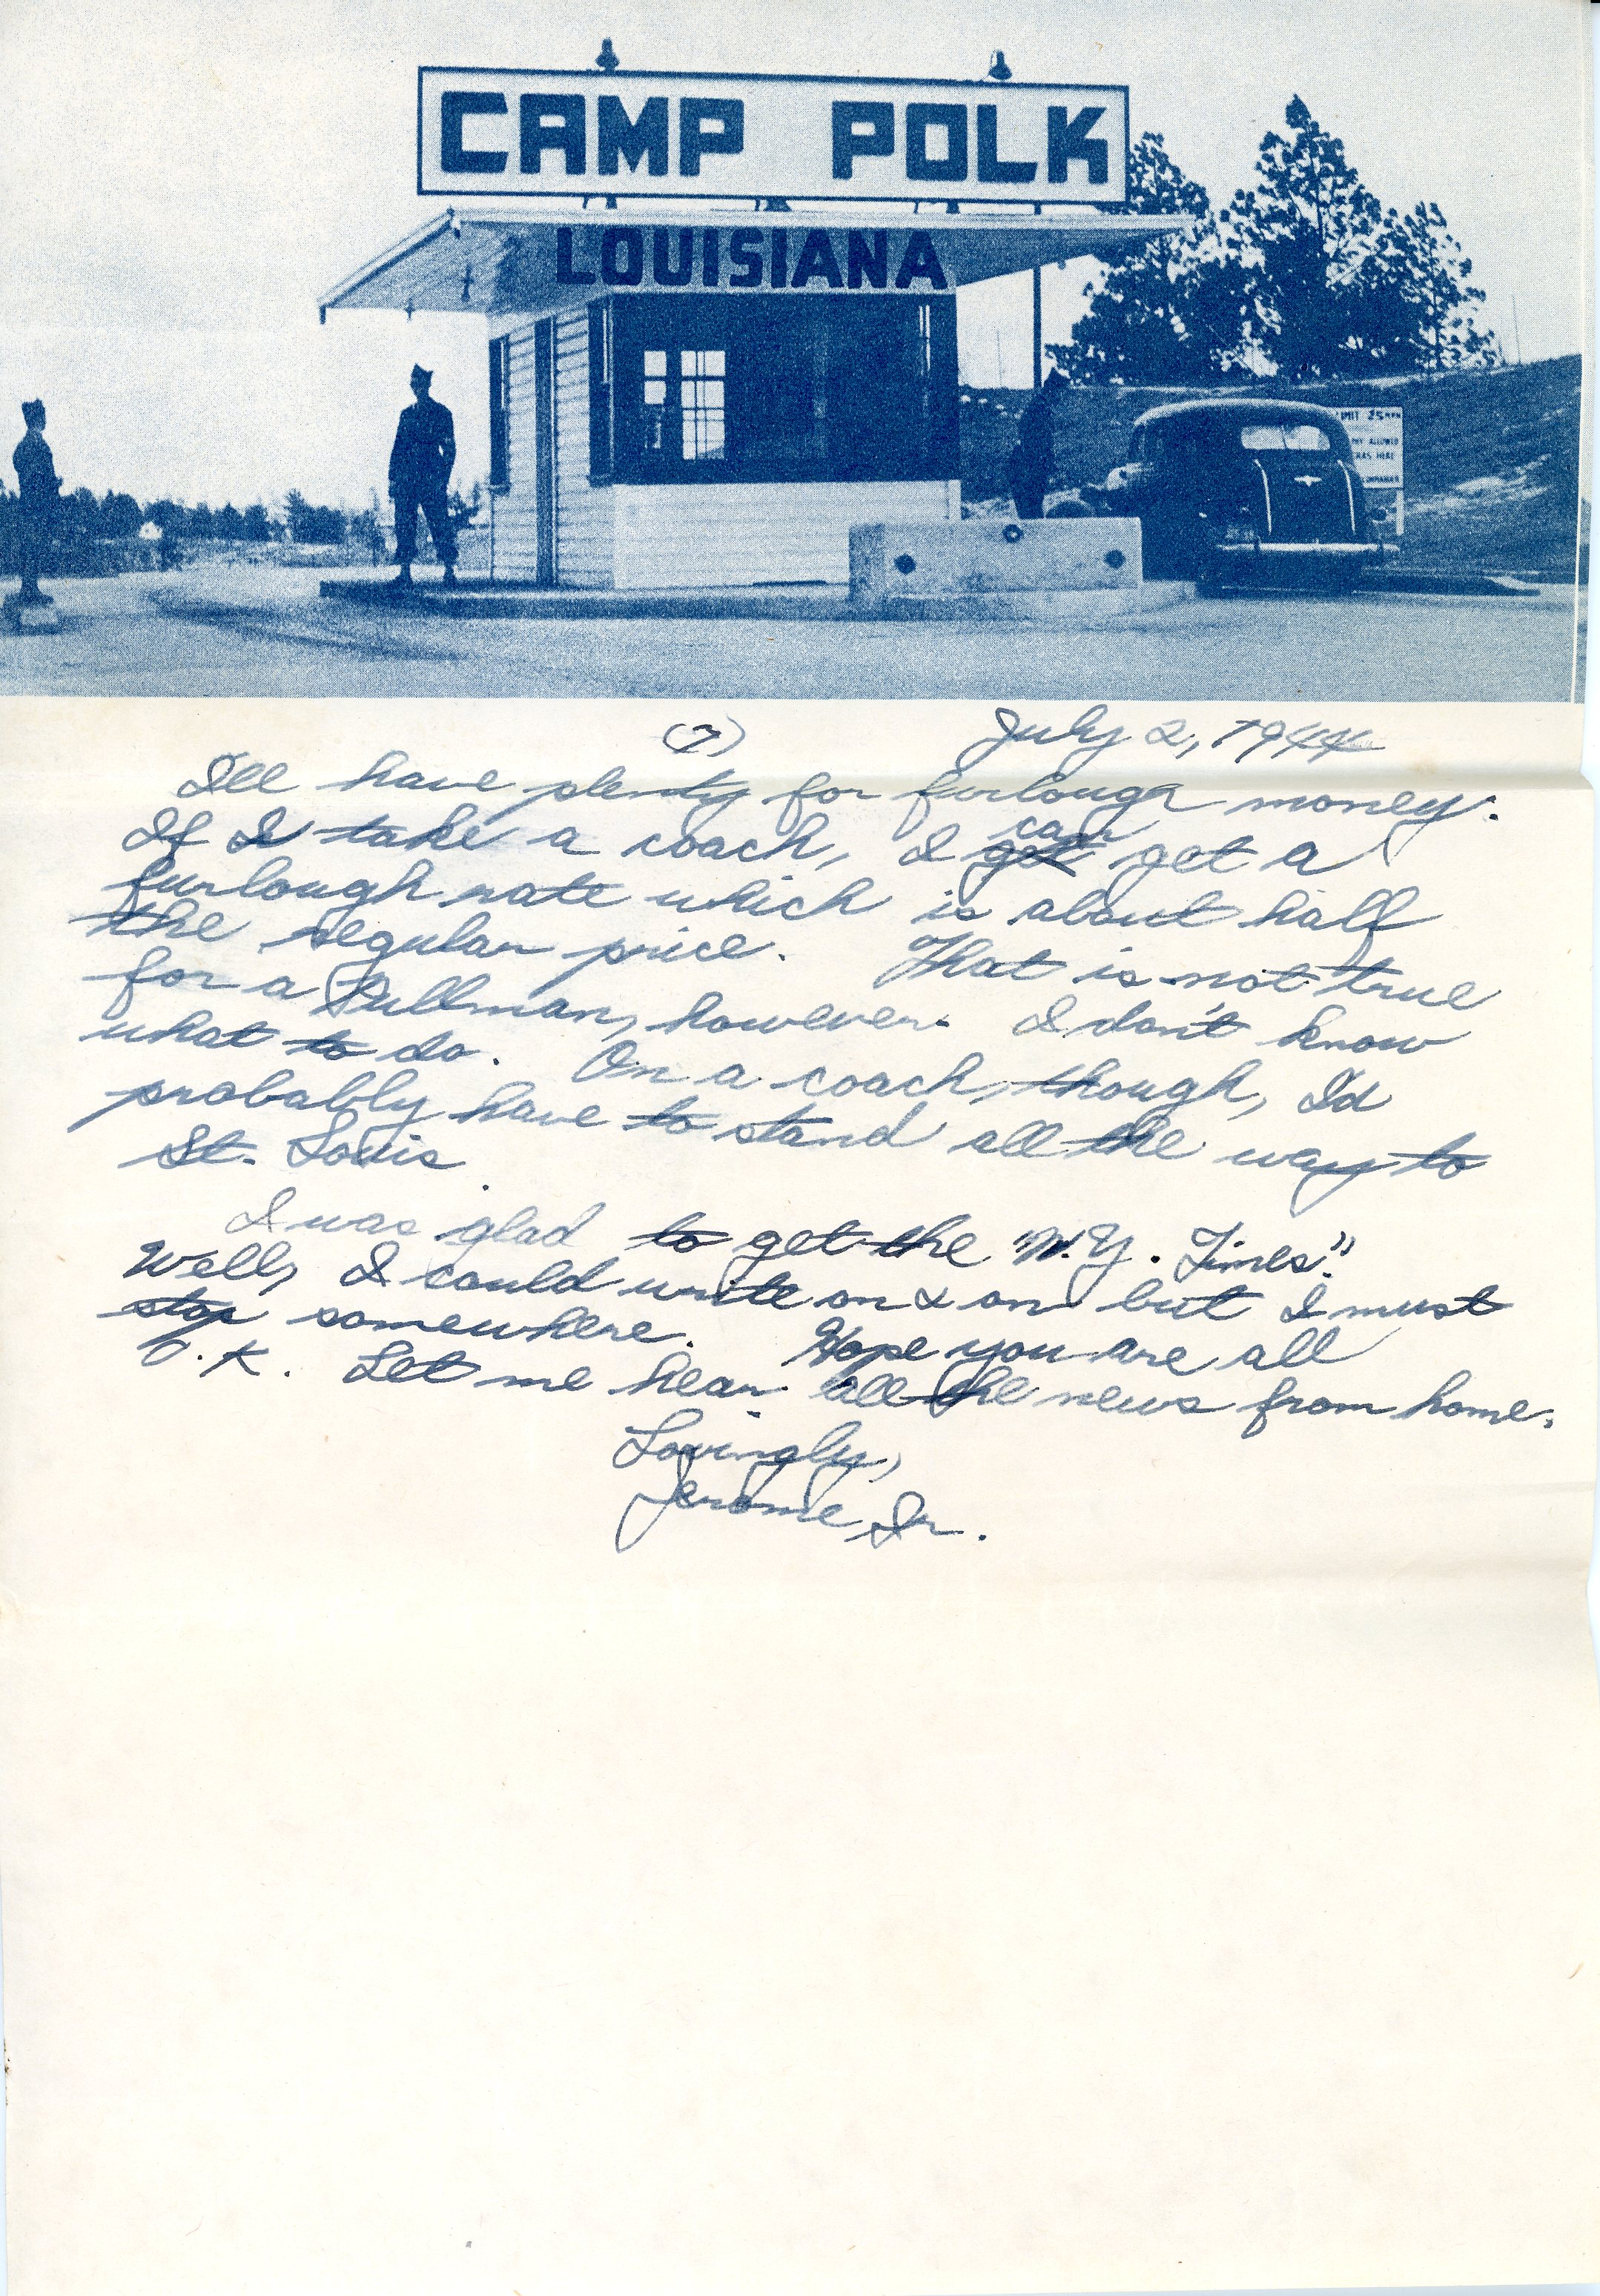 CAMP POLK
LOUISIANA
IMIT 25 MPH
ALLOWED
HERE
(7) July 2, 1944
I'll have plenty for furlough money.
If I take a coach, I can get a
furlough rate which is about half
the regular price. That is not true
for a Pullman, however. I don't know
what to do. On a coach, though, I'd
probably have to stand all the way to
St. Louis.
I was glad to get the "N.Y. Times".
Well, I could write on & on but I must
stop somewhere. Hope you are all
O.K. Let me hear all the news from home.
Lovingly,
Jerome, Jr.